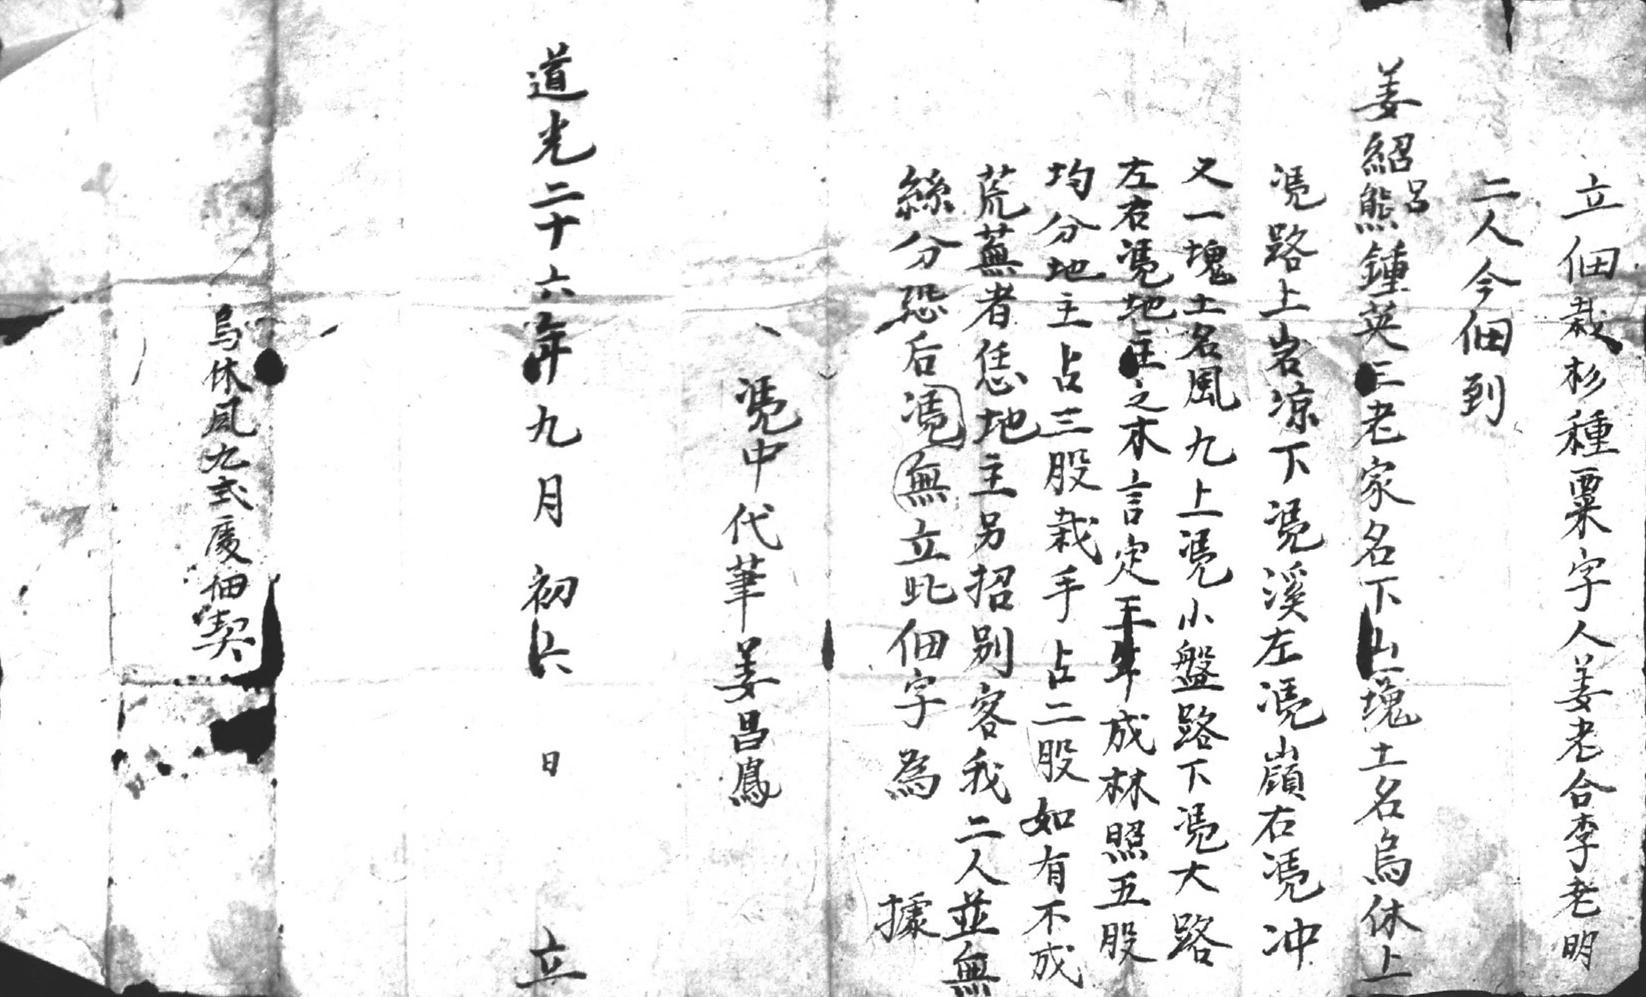 立佃栽杉種粟字人姜老合李老明
二人今佃到
姜紹熊呂鍾英三老家名下山塊土名烏休上
憑路上岩凉下憑溪左憑嶺右憑冲
又一塊土名風九上憑小盤路下憑大路
左右憑地主之木言定五年成林照五股
均分地主占三股栽手占二股如有不成
荒蕪者恁地主另招别客我二人並無
絲分恐后憑無立此佃字為據
憑中代筆姜昌鳳
道光二十六年九月初六日立
烏休風九弍處佃契